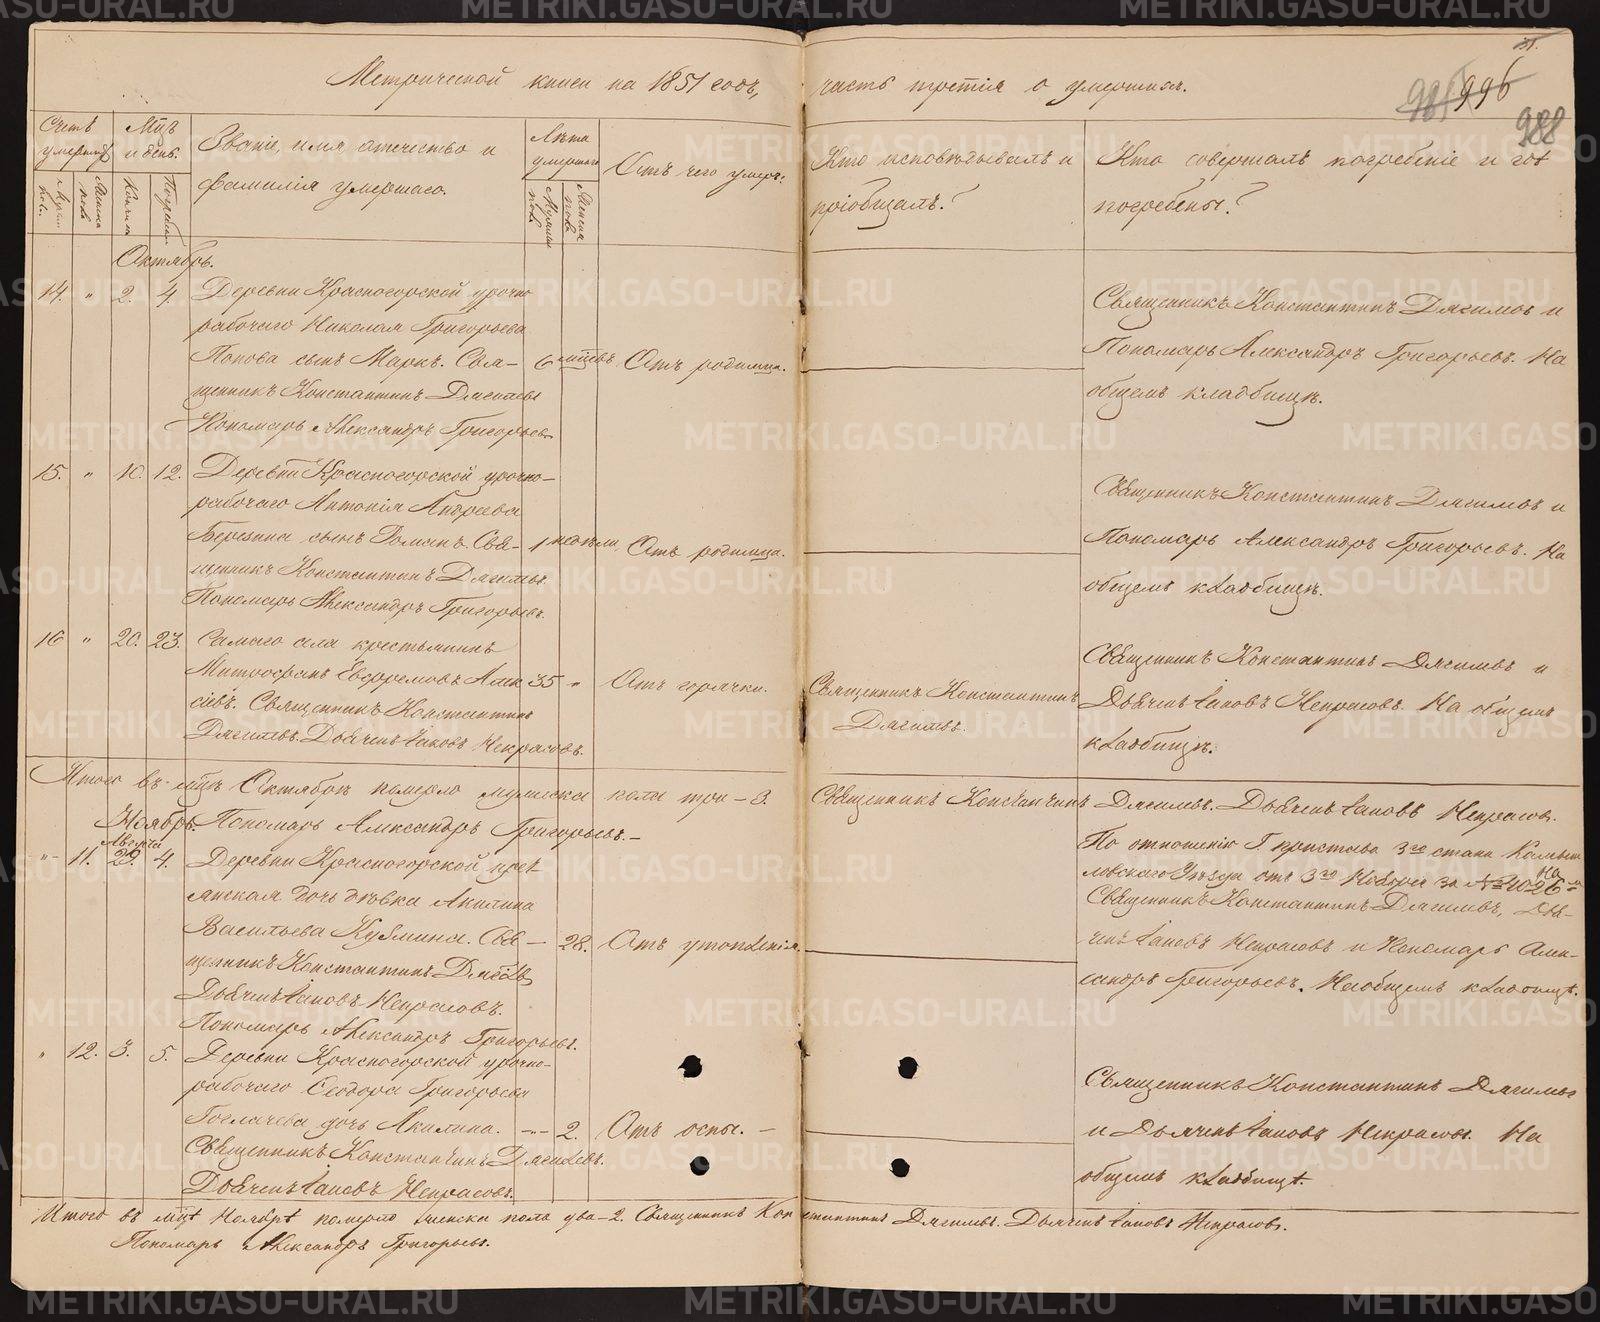 Метрической книги на 1851 годъ, часть третія о умершихъ.
996
988
Счетъ умершихъ
Мцъ и день.
Званіе, имя, отечество и фамилія умершаго.
Лѣта умершаго
Отъ чего умеръ.
Кто исповѣдывалъ и пріобщалъ?
Кто совершалъ погребеніе и гдѣ погребены?
Октябрь.
14. " 2. 4.
Деревни Красногорской урочно
рабочаго Николая Григорьева
Попова сынъ Маркъ. Свя-
щенникъ Константинъ Дягилевъ
Пономарь Александръ Григорьевъ
6 мцевъ
Отъ родимца.
Священникъ Константинъ Дягилевъ и
Пономарь Александръ Григорьевъ. На
общемъ кладбищѣ.
15. " 10. 12.
Деревни Красногорской урочно-
рабочаго Антонія Андреева
Березина сынъ Романъ. Свя-
щенникъ Константинъ Дягилевъ.
Пономарь Александръ Григорьевъ.
1 недѣли
Отъ родимца.
Священникъ Константинъ Дягилевъ и
Пономарь Александръ Григорьевъ. На
общемъ кладбищѣ.
16 " 20. 23.
Самаго села крестьянинъ
Митрофанъ Евфремовъ Алек
сѣевъ. Священникъ Константинъ
Дягилевъ. Дьячекъ Іаковъ Некрасовъ.
35 "
Отъ горячки.
Священникъ Константинъ
Дягилевъ.
Священникъ Константинъ Дягилевъ и
Дьячекъ Іаковъ Некрасовъ. На общемъ
кладбищѣ.
Итого въ мцѣ Октябрѣ померло мужеска пола три – 3. Священникъ Константинъ Дягилевъ. Дьячекъ Іаковъ Некрасовъ.
Пономарь Александръ Григорьевъ. –
Ноябрь.
Августа
" 11. 29. 4.
Деревни Красногорской крест
янская дочь дѣвка Акилина
Васильева Кузмина. Свя-
щенникъ Константинъ Дягилевъ
Дьячекъ Іаковъ Некрасовъ.
Пономарь Александръ Григорьевъ.
28.
Отъ утопленія.
По отношенію Г. пристава 3го стана Камыш
ловскаго Уѣзда отъ 3го Ноября за №
Священникъ Константинъ Дягилевъ, Дья-
чекъ Іаковъ Некрасовъ и Пономарь Алек-
сандръ Григорьевъ. На общемъ кладбищѣ.
" 12. 3. 5.
Деревни Красногорской урочно-
рабочаго Ѳеодора Григорьева
дочь Акилина.
Священникъ Константинъ Дягилевъ.
Дьячекъ Іаковъ Некрасовъ.
2.
Отъ оспы. –
Священникъ Константинъ Дягилевъ
и Дьячекъ Іаковъ Некрасовъ. На
общемъ кладбищѣ.
Итого въ мцѣ Ноябрѣ померло женска пола два – 2. Священникъ Константинъ Дягилевъ. Дьячекъ Іаковъ Некрасовъ.
Пономарь Александръ Григорьевъ.
METRIKI.GASO-URAL.RU